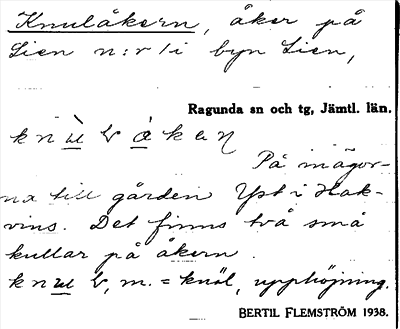 Knulåkern, åker på
Lien n:r 1 i byn Lien,
Ragunda sn och tg, Jämtl. län.
På mägor-
na till gården Yst i Hak-
vins. Det finns två små
kullar på åkern.
m. = knöl, upphöjning.
BERTIL FLEMSTRÖM 1938.